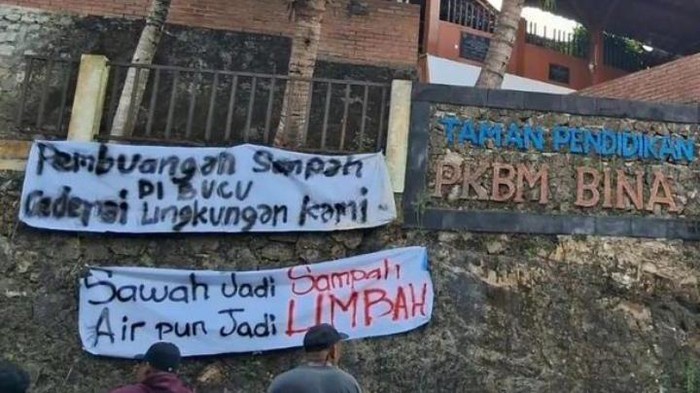 Pembuangan Sampah
DI BUCU
Cederai Lingkungan Kami
Sawah Jadi Sampah
Air pun Jadi LIMBAH
TAMAN PENDIDIKAN
PKBM BINA